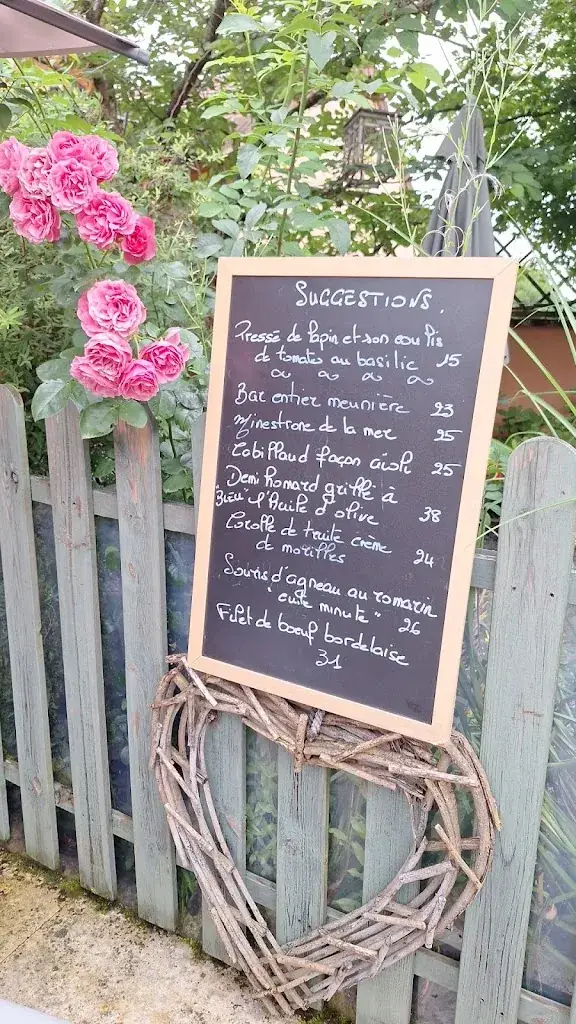 SUGGESTIONS.
Pressé de lapin et son coulis
de tomates au basilic 15
Bar entier meunière 23
Minestrone de la mer 25
Cabillaud façon aïoli 25
Demi homard grillé à
"Bleu" l'huile d'olive 38
Corolle de truite crème
de morilles 24
Souris d'agneau au romarin
"cuite minute" 26
Filet de boeuf bordelaise
31